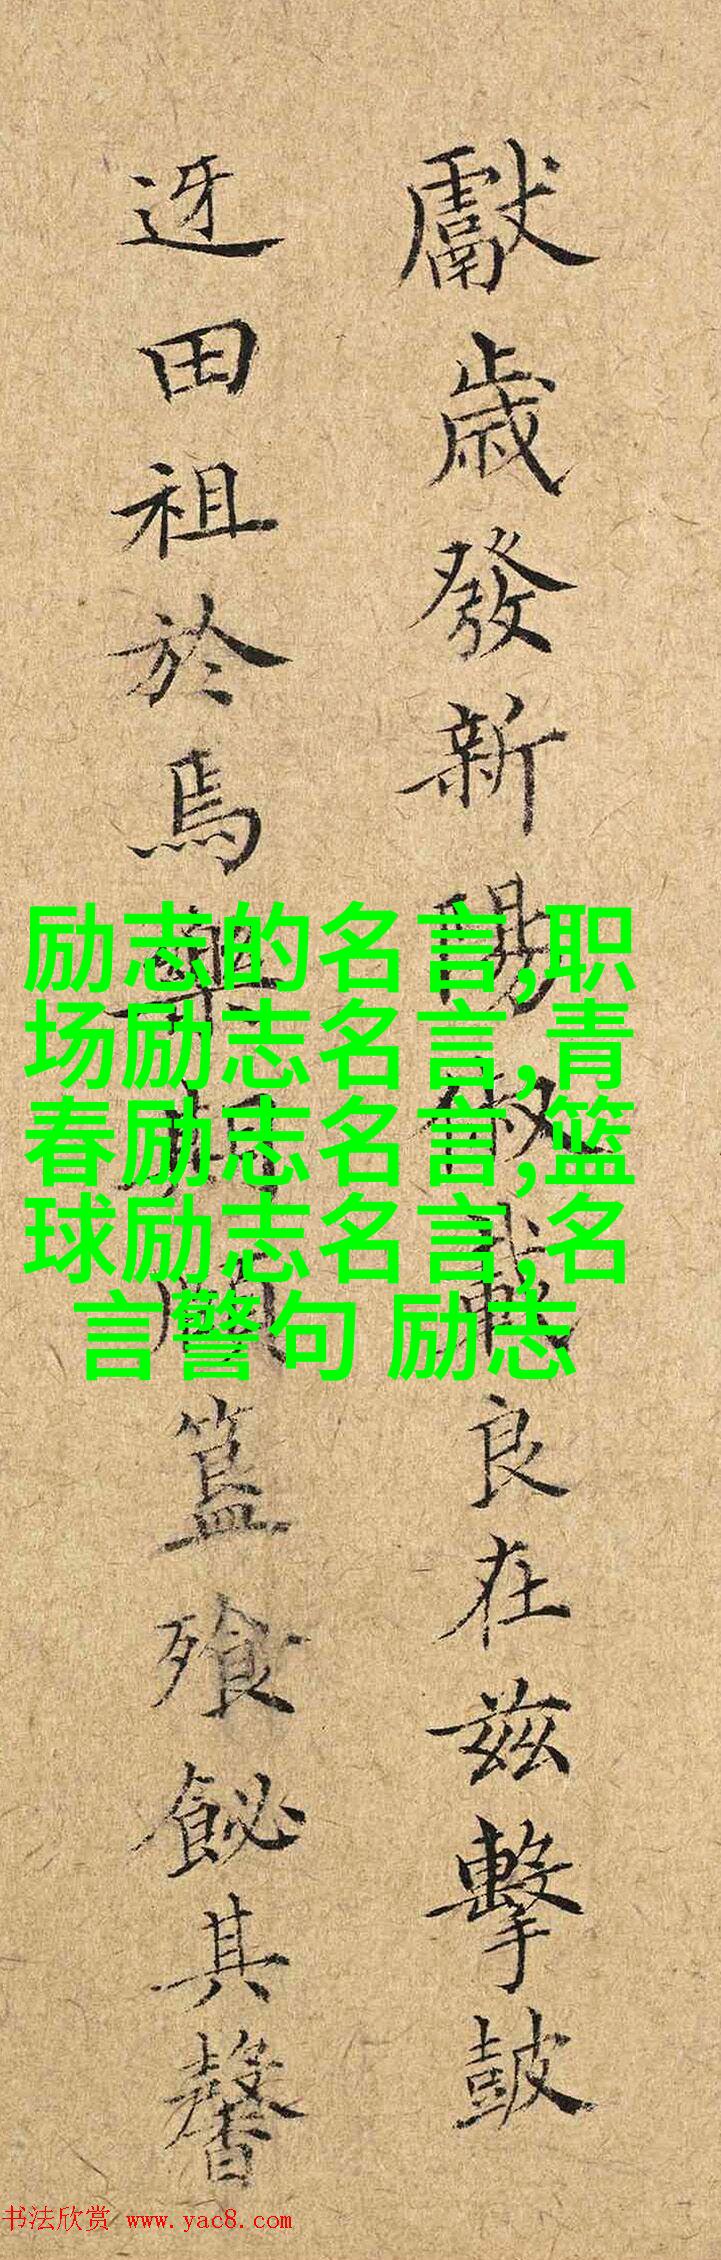 獻歲發新陽俶載良在茲擊鼓
迓田祖於焉舉趾顒簋飱飶其馨
励志的名言,职
场励志名言,青
春励志名言,篮
球励志名言,名
言警句 励志
书法欣赏 www.yac8.com